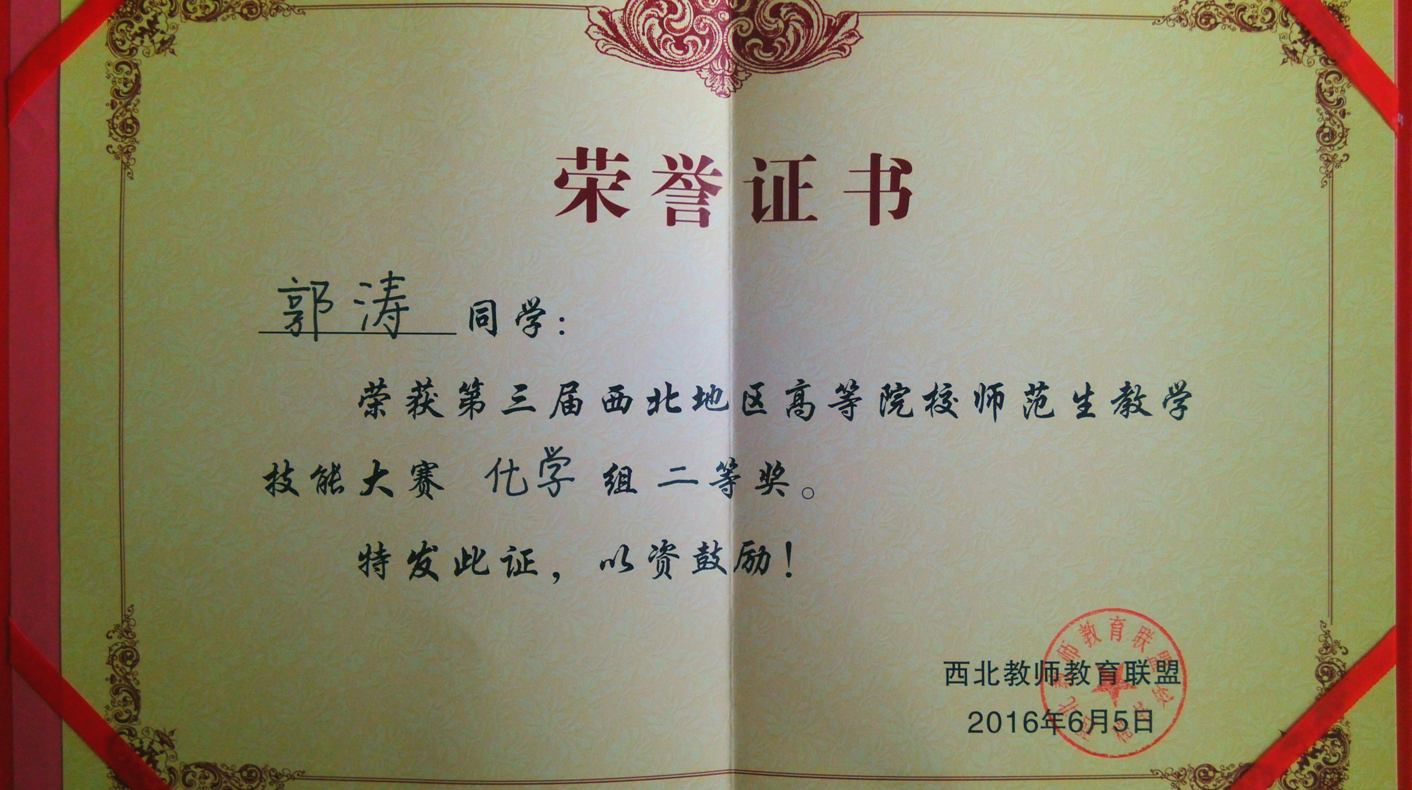 荣誉证书
郭涛 同学：
荣获第三届西北地区高等院校师范生教学
技能大赛 化学 组 二等奖。
特发此证，以资鼓励！
西北教师教育联盟
2016年6月5日
西北教师教育联盟